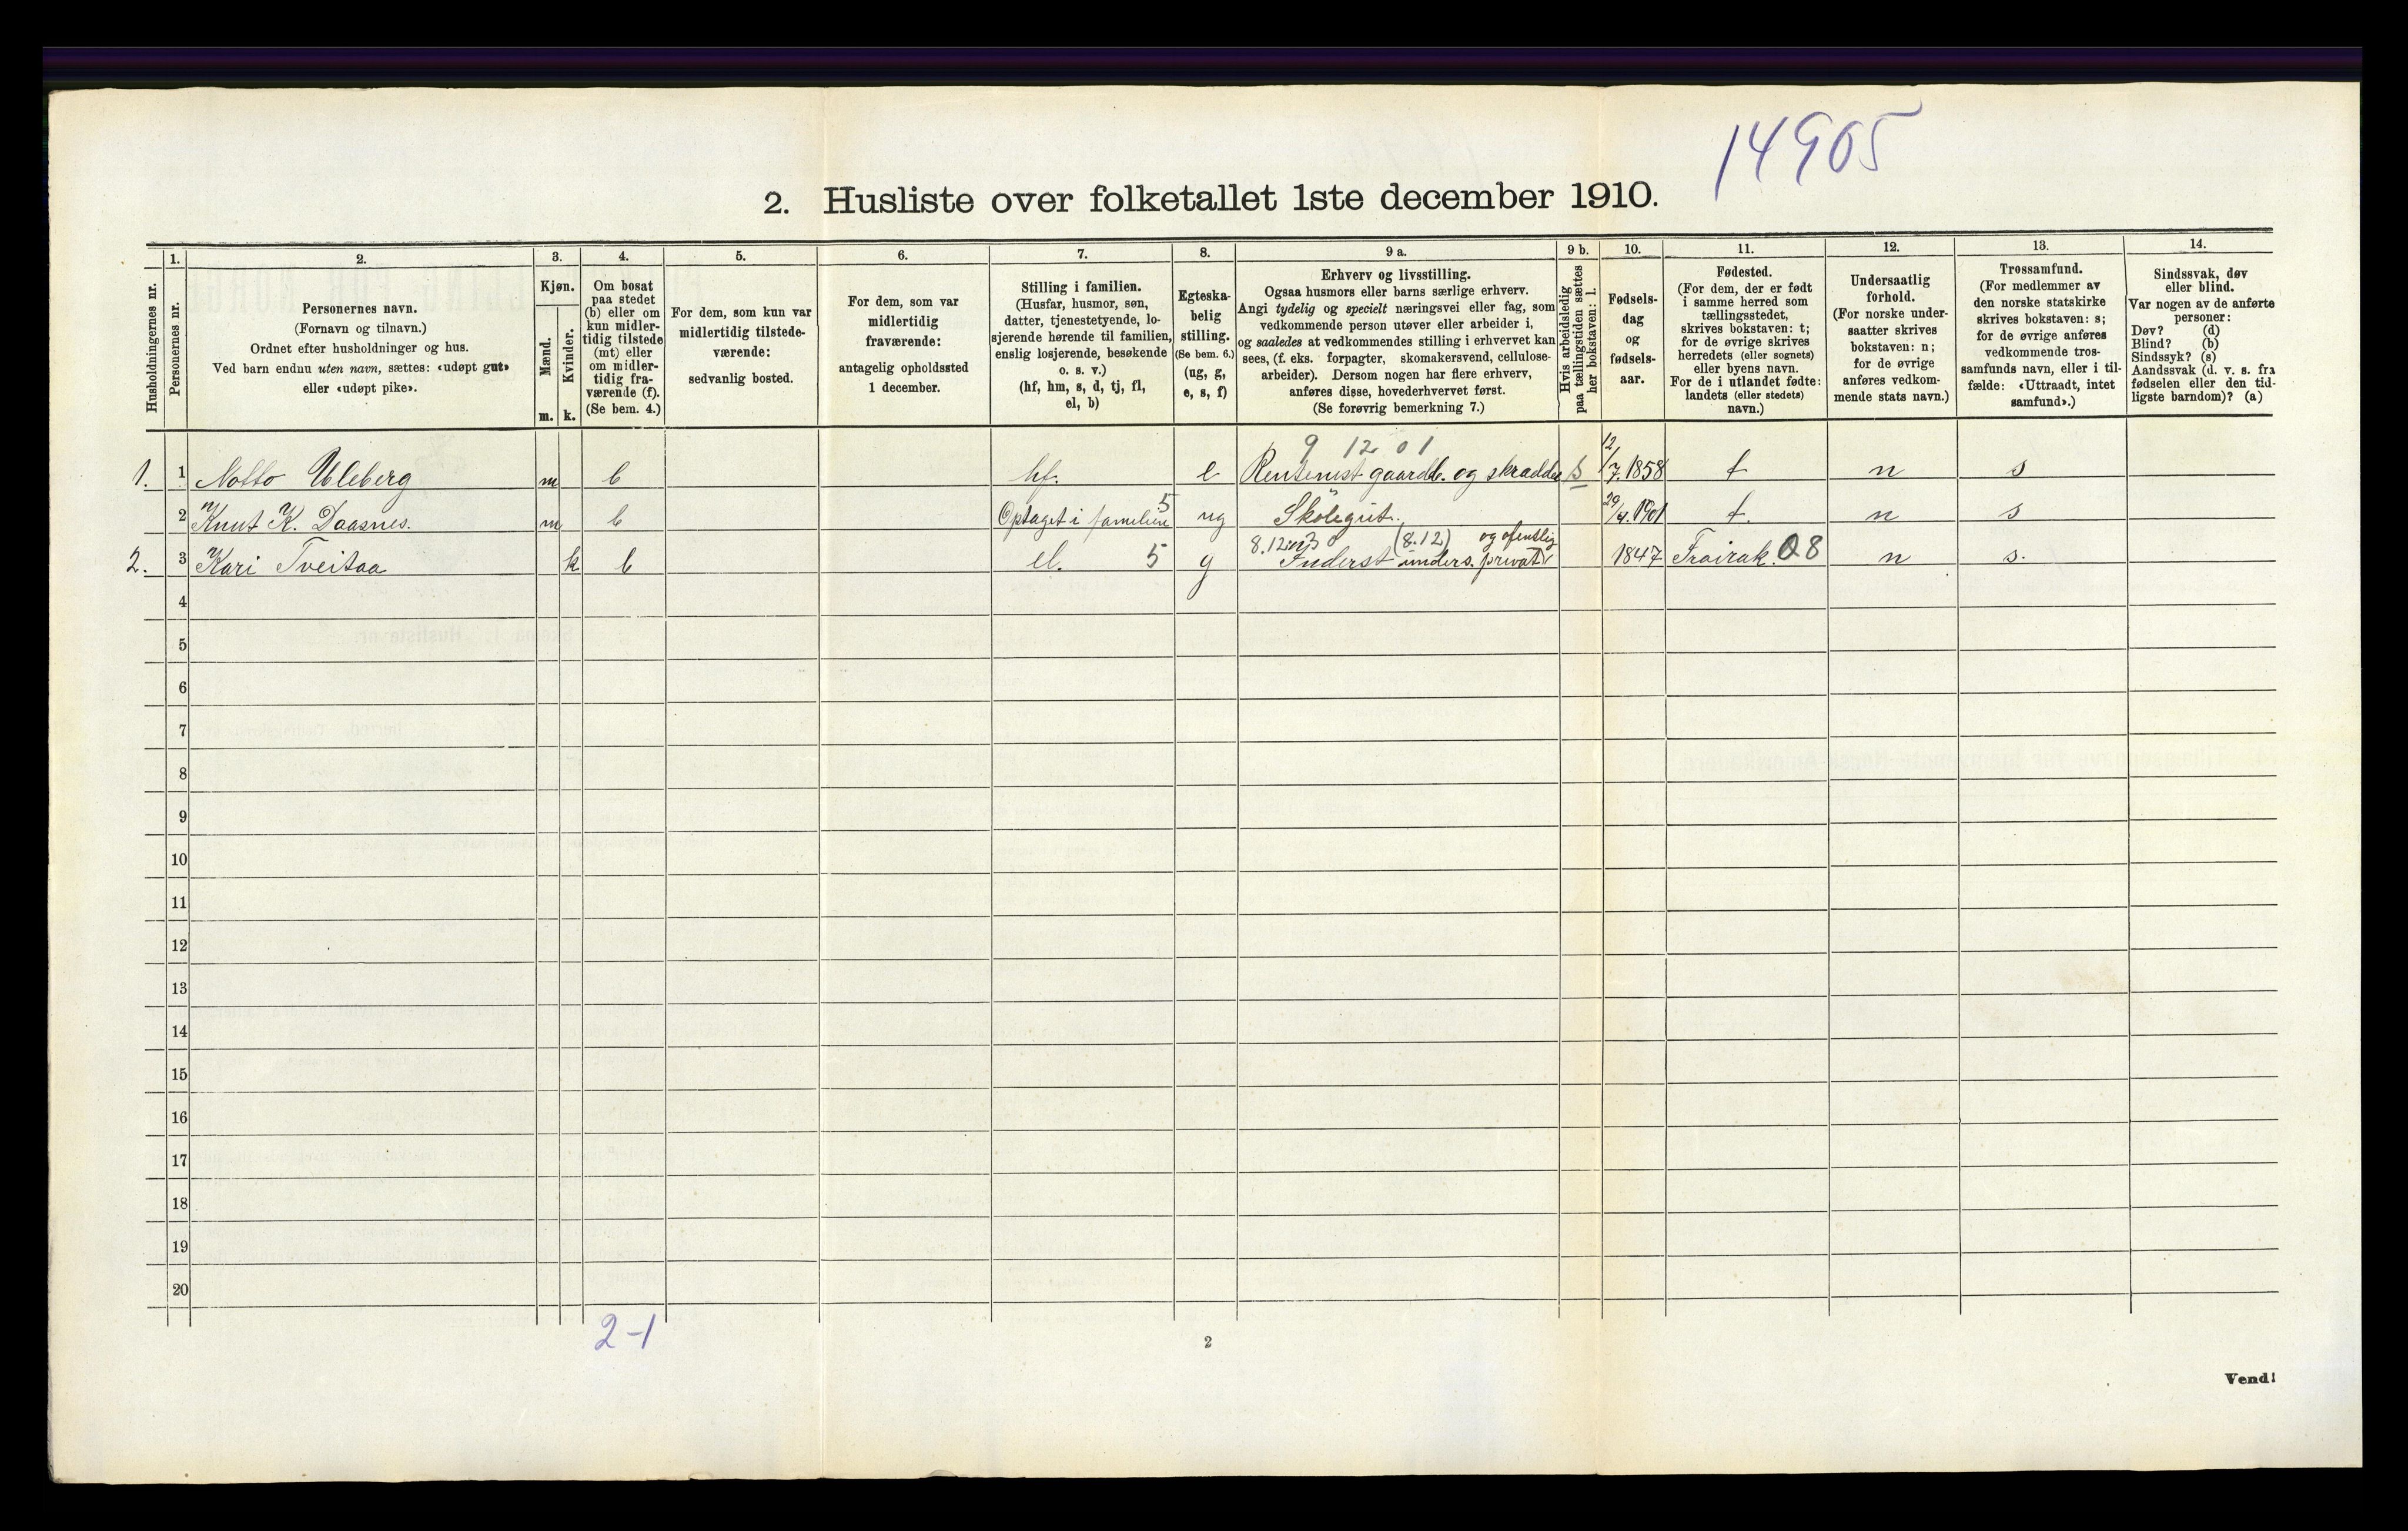 14905
2. Husliste over folketallet 1ste december 1910.
Husholdningernes nr.
1.
Personernes nr.
2.
Personernes navn.
(Fornavn og tilnavn.)
Ordnet efter husholdninger og hus.
Ved barn endnu uten navn, sættes: «udøpt gut»
eller «udøpt pike».
3.
Kjøn.
Mænd.
Kvinder.
m. k.
4.
Om bosat
paa stedet
(b) eller om
kun midler-
tidig tilstede
(mt) eller
om midler-
tidig fra-
værende (f).
(Se bem. 4.)
5.
For dem, som kun var
midlertidig tilstede-
værende:
sedvanlig bosted.
6.
For dem, som var
midlertidig
fraværende:
antagelig opholdssted
1 december.
7.
Stilling i familien.
(Husfar, husmor, søn,
datter, tjenestetyende, lo-
sjerende hørende til familien,
enslig losjerende, besøkende
o. s. v.)
(hf, hm, s, d, tj, fl,
el, b)
8.
Egteska-
belig
stilling.
(Se bem. 6.)
(ug, g,
e, s, f)
9 a.
Erhverv og livsstilling.
Ogsaa husmors eller barns særlige erhverv.
Angi tydelig og specielt næringsvei eller fag, som
vedkommende person utøver eller arbeider i,
og saaledes at vedkommendes stilling i erhvervet kan
sees, (f. eks. forpagter, skomakersvend, cellulose-
arbeider). Dersom nogen har flere erhverv,
anføres disse, hovederhvervet først.
(Se forøvrig bemerkning 7.)
9 b.
Hvis arbeidsledig
paa tællingstiden sættes
her bokstaven: l.
10.
Fødsels-
dag
og
fødsels-
aar.
11.
Fødested.
(For dem, der er født
i samme herred som
tællingsstedet,
skrives bokstaven: t;
for de øvrige skrives
herredets (eller sognets)
eller byens navn.
For de i utlandet fødte:
landets (eller stedets)
navn.)
12.
Undersaatlig
forhold.
(For norske under-
saatter skrives
bokstaven: n;
for de øvrige
anføres vedkom-
mende stats navn.)
13.
Trossamfund.
(For medlemmer av
den norske statskirke
skrives bokstaven: s;
for de øvrige anføres
vedkommende tros-
samfunds navn, eller i til-
fælde: «Uttraadt, intet
samfund».)
14.
Sindssvak, døv
eller blind.
Var nogen av de anførte
personer:
Døv? (d)
Blind? (b)
Sindssyk? (s)
Aandssvak (d. v. s. fra
fødselen eller den tid-
ligste barndom)? (a)
9 12 01
1. 1 Notto Uleberg m b hf. e Rentenist gaardb. og skrædder s 12/7.1858 t n s
5
2 Knut K. Daasnes. m b Optaget i familien ug Skolegut. 29/4.1901 t. n s
8.12 (8.12) og ofentlig
2. 3 Kari Tveitaa k b el. 5 g Inderst unders. privat 1847 Froirak. 08 n s.
4
5
6
7
8
9
10
11
12
13
14
15
16
17
18
19
20
2-1
2
Vend!